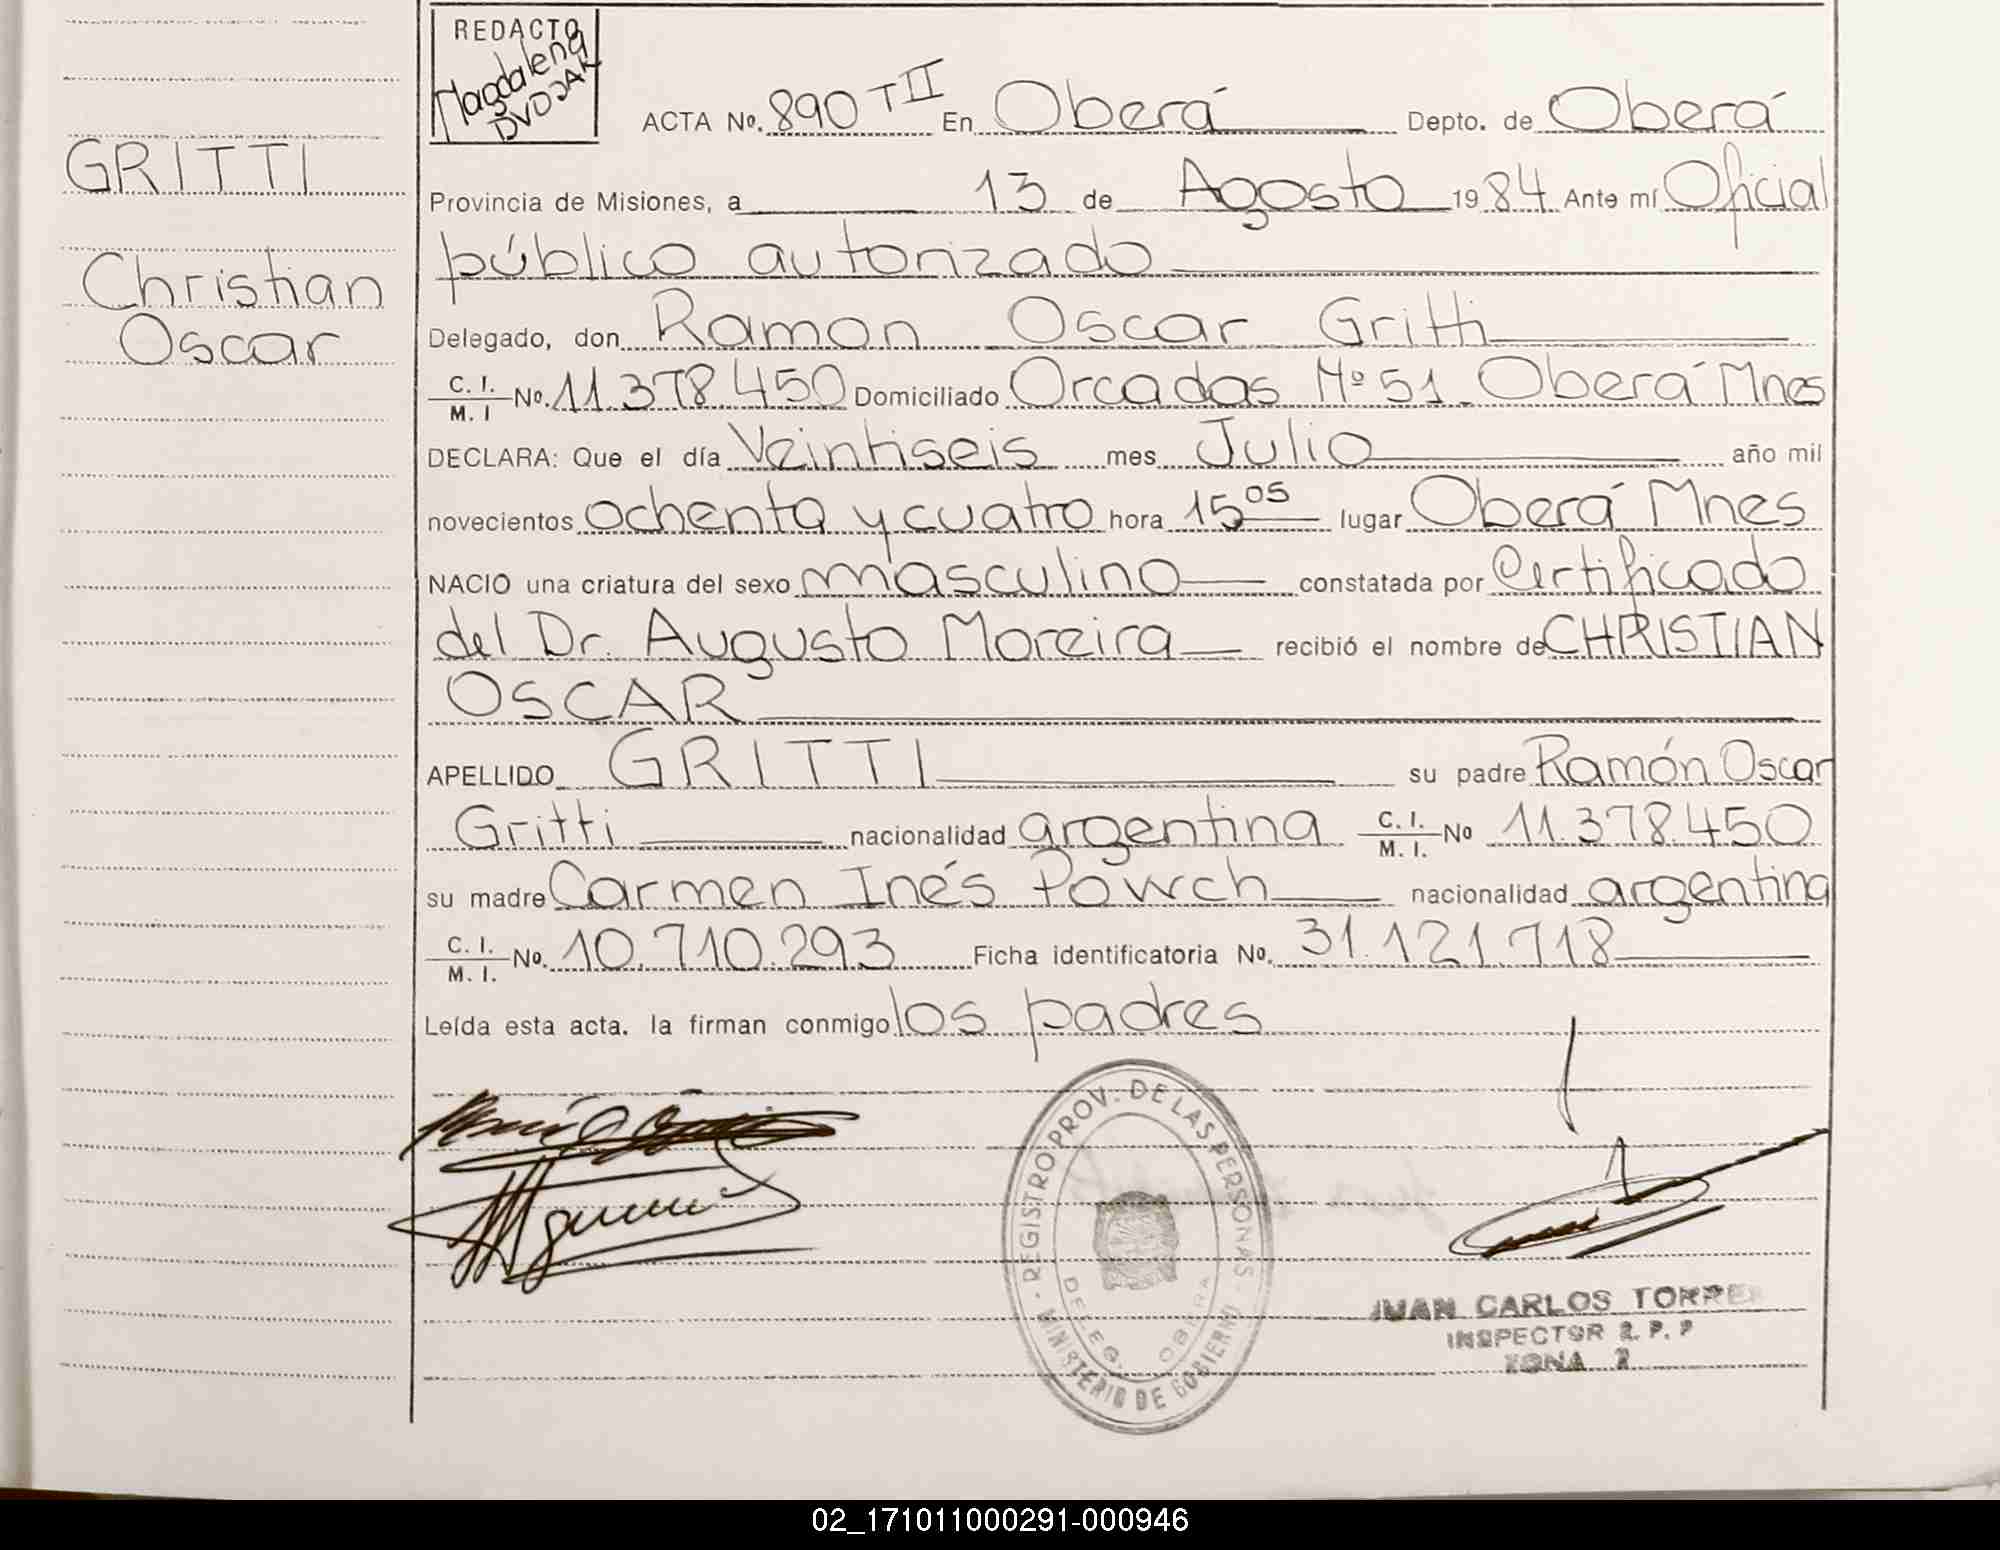 REDACTO
Magdalena
DVOJAK
GRITTI
Christian
Oscar
ACTA No. 890 TII En Oberá Depto. de Oberá
Provincia de Misiones, a 13 de Agosto 1984 Ante mí Oficial
público autorizado
Delegado, don Ramon Oscar Gritti
C. I. / M. I No. 11.378.450 Domiciliado Orcadas Nº 51 - Oberá Mnes
DECLARA: Que el día Veintiseis mes Julio año mil
novecientos ochenta y cuatro hora 15 05 lugar Oberá Mnes
NACIO una criatura del sexo masculino constatada por Certificado
del Dr. Augusto Moreira recibió el nombre de CHRISTIAN
OSCAR
APELLIDO GRITTI su padre Ramón Oscar
Gritti nacionalidad argentina C. I. / M. I. No 11.378.450
su madre Carmen Inés Powch nacionalidad argentina
C. I. / M. I. No. 10.710.293 Ficha identificatoria No. 31.121.718
Leída esta acta. la firman conmigo los padres
REGISTRO PROV. DE LAS PERSONAS
MINISTERIO DE GOBIERNO
DELEG. OBERA
JUAN CARLOS TORRES
INSPECTOR R. P. P
ZONA 2
02_171011000291-000946